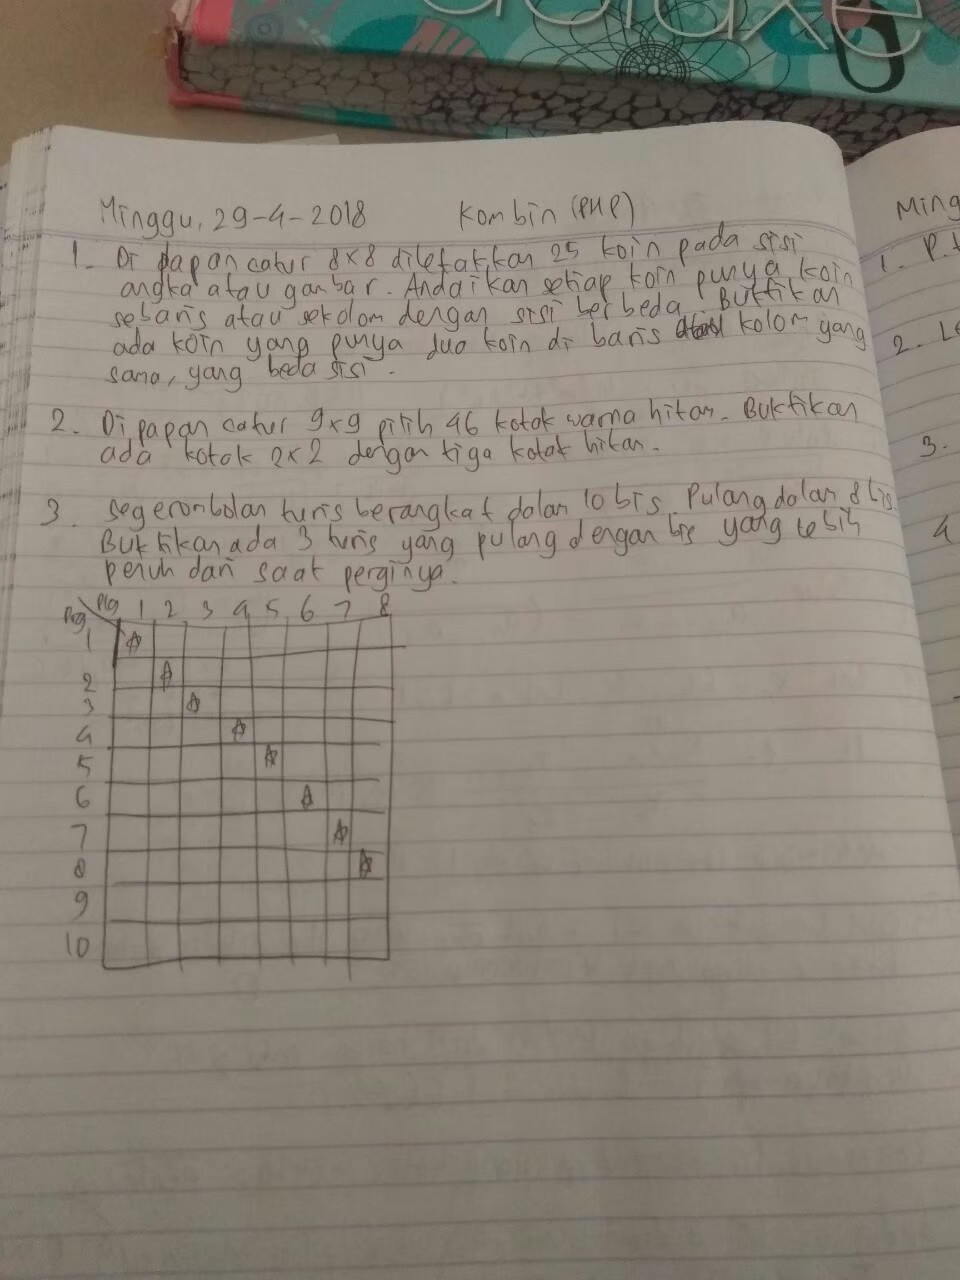 deluxe
Minggu, 29-4-2018 Kombin (PHP)
1. Di papan catur 8x8 diletakkan 25 koin pada sisi
angka atau gambar. Andaikan setiap koin punya koin
sebaris atau sekolom dengan sisi berbeda. Buktikan
ada koin yang punya dua koin di baris kolom yang
sama, yang beda sisi.
2. Di papan catur 9x9 pilih 46 kotak warna hitam. Buktikan
ada kotak 2x2 dengan tiga kotak hitam.
3. Segerombolan turis berangkat dalam 10 bis. Pulang dalam 8 bis.
Buktikan ada 3 turis yang pulang dengan bis yang lebih
penuh dari saat perginya.
Prg Plg 1 2 3 4 5 6 7 8
1
2
3
4
5
6
7
8
9
10
Ming
1. P.
2. Le
3.
4